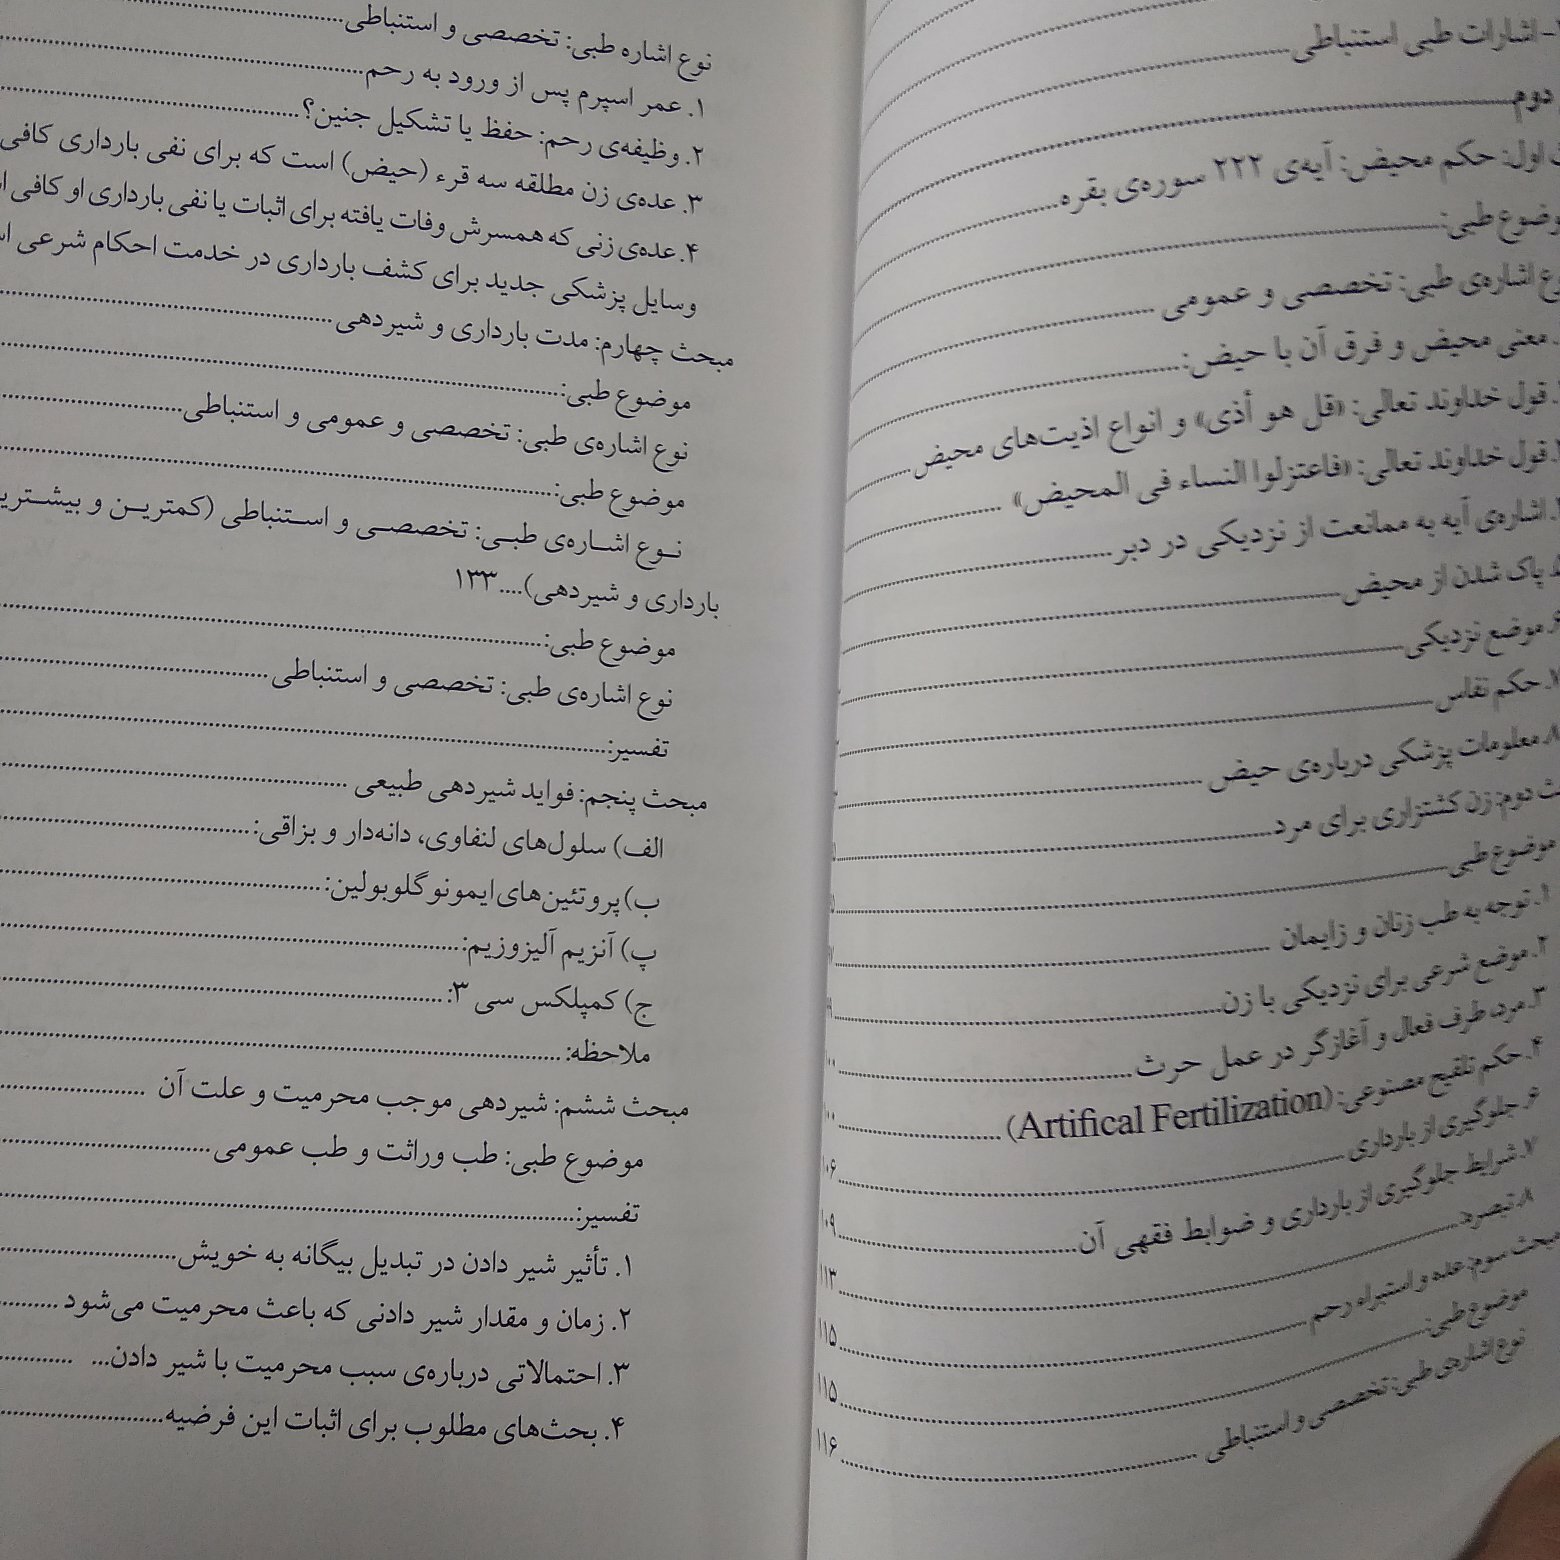 اشارات طبی استنباطی
دوم
اول: حکم محیض: آیه‌ی ۲۲۲ سوره‌ی بقره
موضوع طبی:
نوع اشاره‌ی طبی: تخصصی و عمومی
معنی محیض و فرق آن با حیض:
قول خداوند تعالی: «قل هو أذی» و انواع اذیت‌های محیض
قول خداوند تعالی: «فاعتزلوا النساء فی المحیض»
اشاره‌ی آیه به ممانعت از نزدیکی در دبر
پاک شدن از محیض
۶. موضع نزدیکی
۷. حکم نفاس
۸. معلومات پزشکی درباره‌ی حیض
دوم: زن کشتزاری برای مرد
موضوع طبی
۱. توجه به طب زنان و زایمان
۲. موضع شرعی برای نزدیکی با زن
۳. مرد، طرف فعال و آغازگر در عمل حرث ۱۰۰
۴. حکم تلقیح مصنوعی: (Artifical Fertilization) ۱۰۰
۶. جلوگیری از بارداری ۱۰۶
۷. شرایط جلوگیری از بارداری و ضوابط فقهی آن ۱۰۹
۸. تبصره ۱۱۳
مبحث سوم: عده و استبراء رحم ۱۱۵
موضوع طبی: ۱۱۵
نوع اشاره‌ی طبی: تخصصی و استنباطی ۱۱۶
نوع اشاره طبی: تخصصی و استنباطی
۱. عمر اسپرم پس از ورود به رحم
۲. وظیفه‌ی رحم: حفظ یا تشکیل جنین؟
۳. عده‌ی زن مطلقه سه قرء (حیض) است که برای نفی بارداری کافی
۴. عده‌ی زنی که همسرش وفات یافته برای اثبات یا نفی بارداری او کافی
وسایل پزشکی جدید برای کشف بارداری در خدمت احکام شرعی
مبحث چهارم: مدت بارداری و شیردهی
موضوع طبی:
نوع اشاره‌ی طبی: تخصصی و عمومی و استنباطی
موضوع طبی:
نوع اشاره‌ی طبی: تخصصی و استنباطی (کمترین و
بارداری و شیردهی)....۱۳۳
موضوع طبی:
نوع اشاره‌ی طبی: تخصصی و استنباطی
تفسیر:
مبحث پنجم: فواید شیردهی طبیعی
الف) سلول‌های لنفاوی، دانه‌دار و بزاقی:
ب) پروتئین‌های ایمونوگلوبولین:
پ) آنزیم آلیزوزیم:
ج) کمپلکس سی ۳:
ملاحظه:
مبحث ششم: شیردهی موجب محرمیت و علت آن
موضوع طبی: طب وراثت و طب عمومی
تفسیر:
۱. تأثیر شیر دادن در تبدیل بیگانه به خویش
۲. زمان و مقدار شیر دادنی که باعث محرمیت می‌شود
۳. احتمالاتی درباره‌ی سبب محرمیت با شیر دادن...
۴. بحث‌های مطلوب برای اثبات این فرضیه